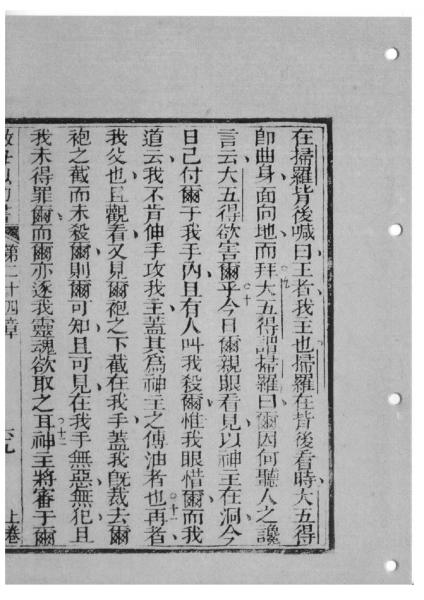 在掃羅背後喊曰王者我王也掃羅在背後看時大五得
卽曲身面向地而拜○九大五得謂掃羅曰爾因何聽人之讒
言云大五得欲害爾乎○十今日爾親眼看見以神主在洞今
日已付爾于我手內且有人叫我殺爾惟我眼惜爾而我
道云我不肯伸手攻我主蓋其爲神主之傅油者也○十一再者
我父也且觀看又見爾袍之下截在我手蓋我旣裁去爾
袍之截而未殺爾則爾可知且可見在我手無惡無犯且
我未得罪爾而爾亦逐我靈魂欲取之耳○十二神主將審于爾
第二十四章 六九 上卷